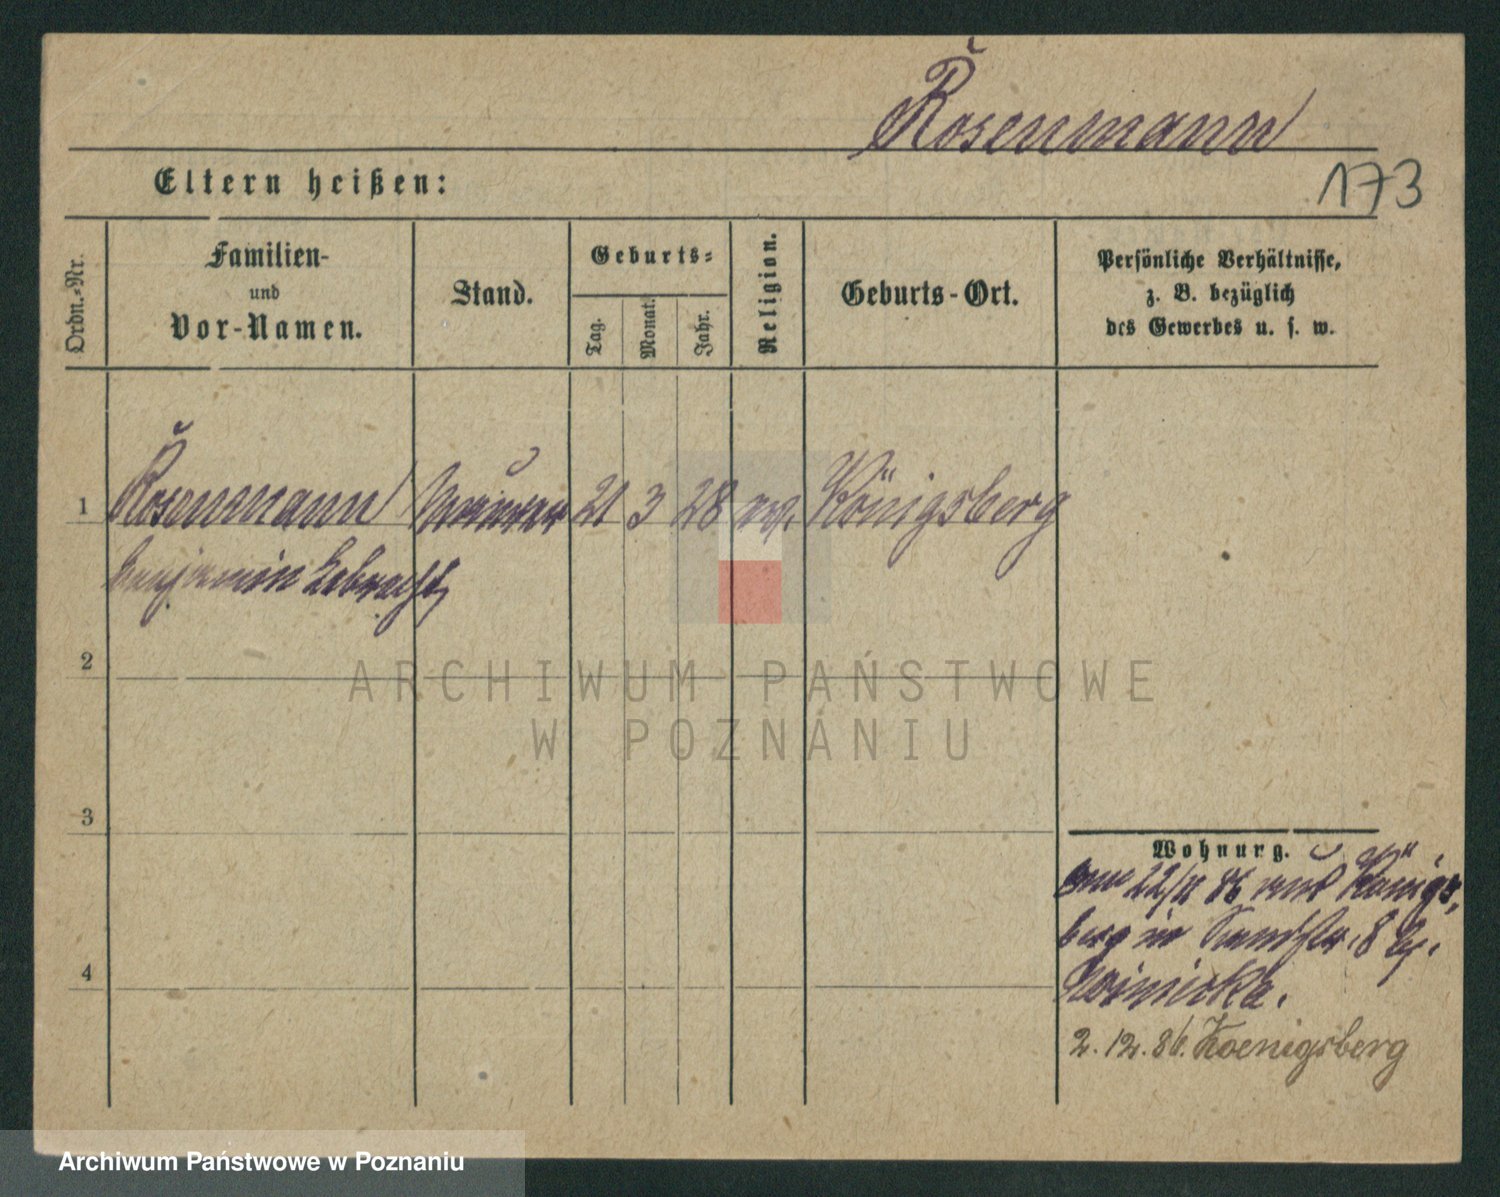 Rosenmann
173
Eltern heißen:
Ordn.-Nr.
Familien-
und
Vor-Namen.
Stand.
Geburts-
Tag.
Monat.
Jahr.
Religion.
Geburts-Ort.
Persönliche Verhältnisse,
z. B. bezüglich
des Gewerbes u. s. w.
1 Rosenmann Maurer 21 3 28 ev. Königsberg
Benjamin Lebrecht
2
3
4
Wohnung.
22/11 86 aus Königs
berg in Sandstr. 8 bei
2.12.86. Koenigsberg
ARCHIWUM PAŃSTWOWE
W POZNANIU
Archiwum Państwowe w Poznaniu